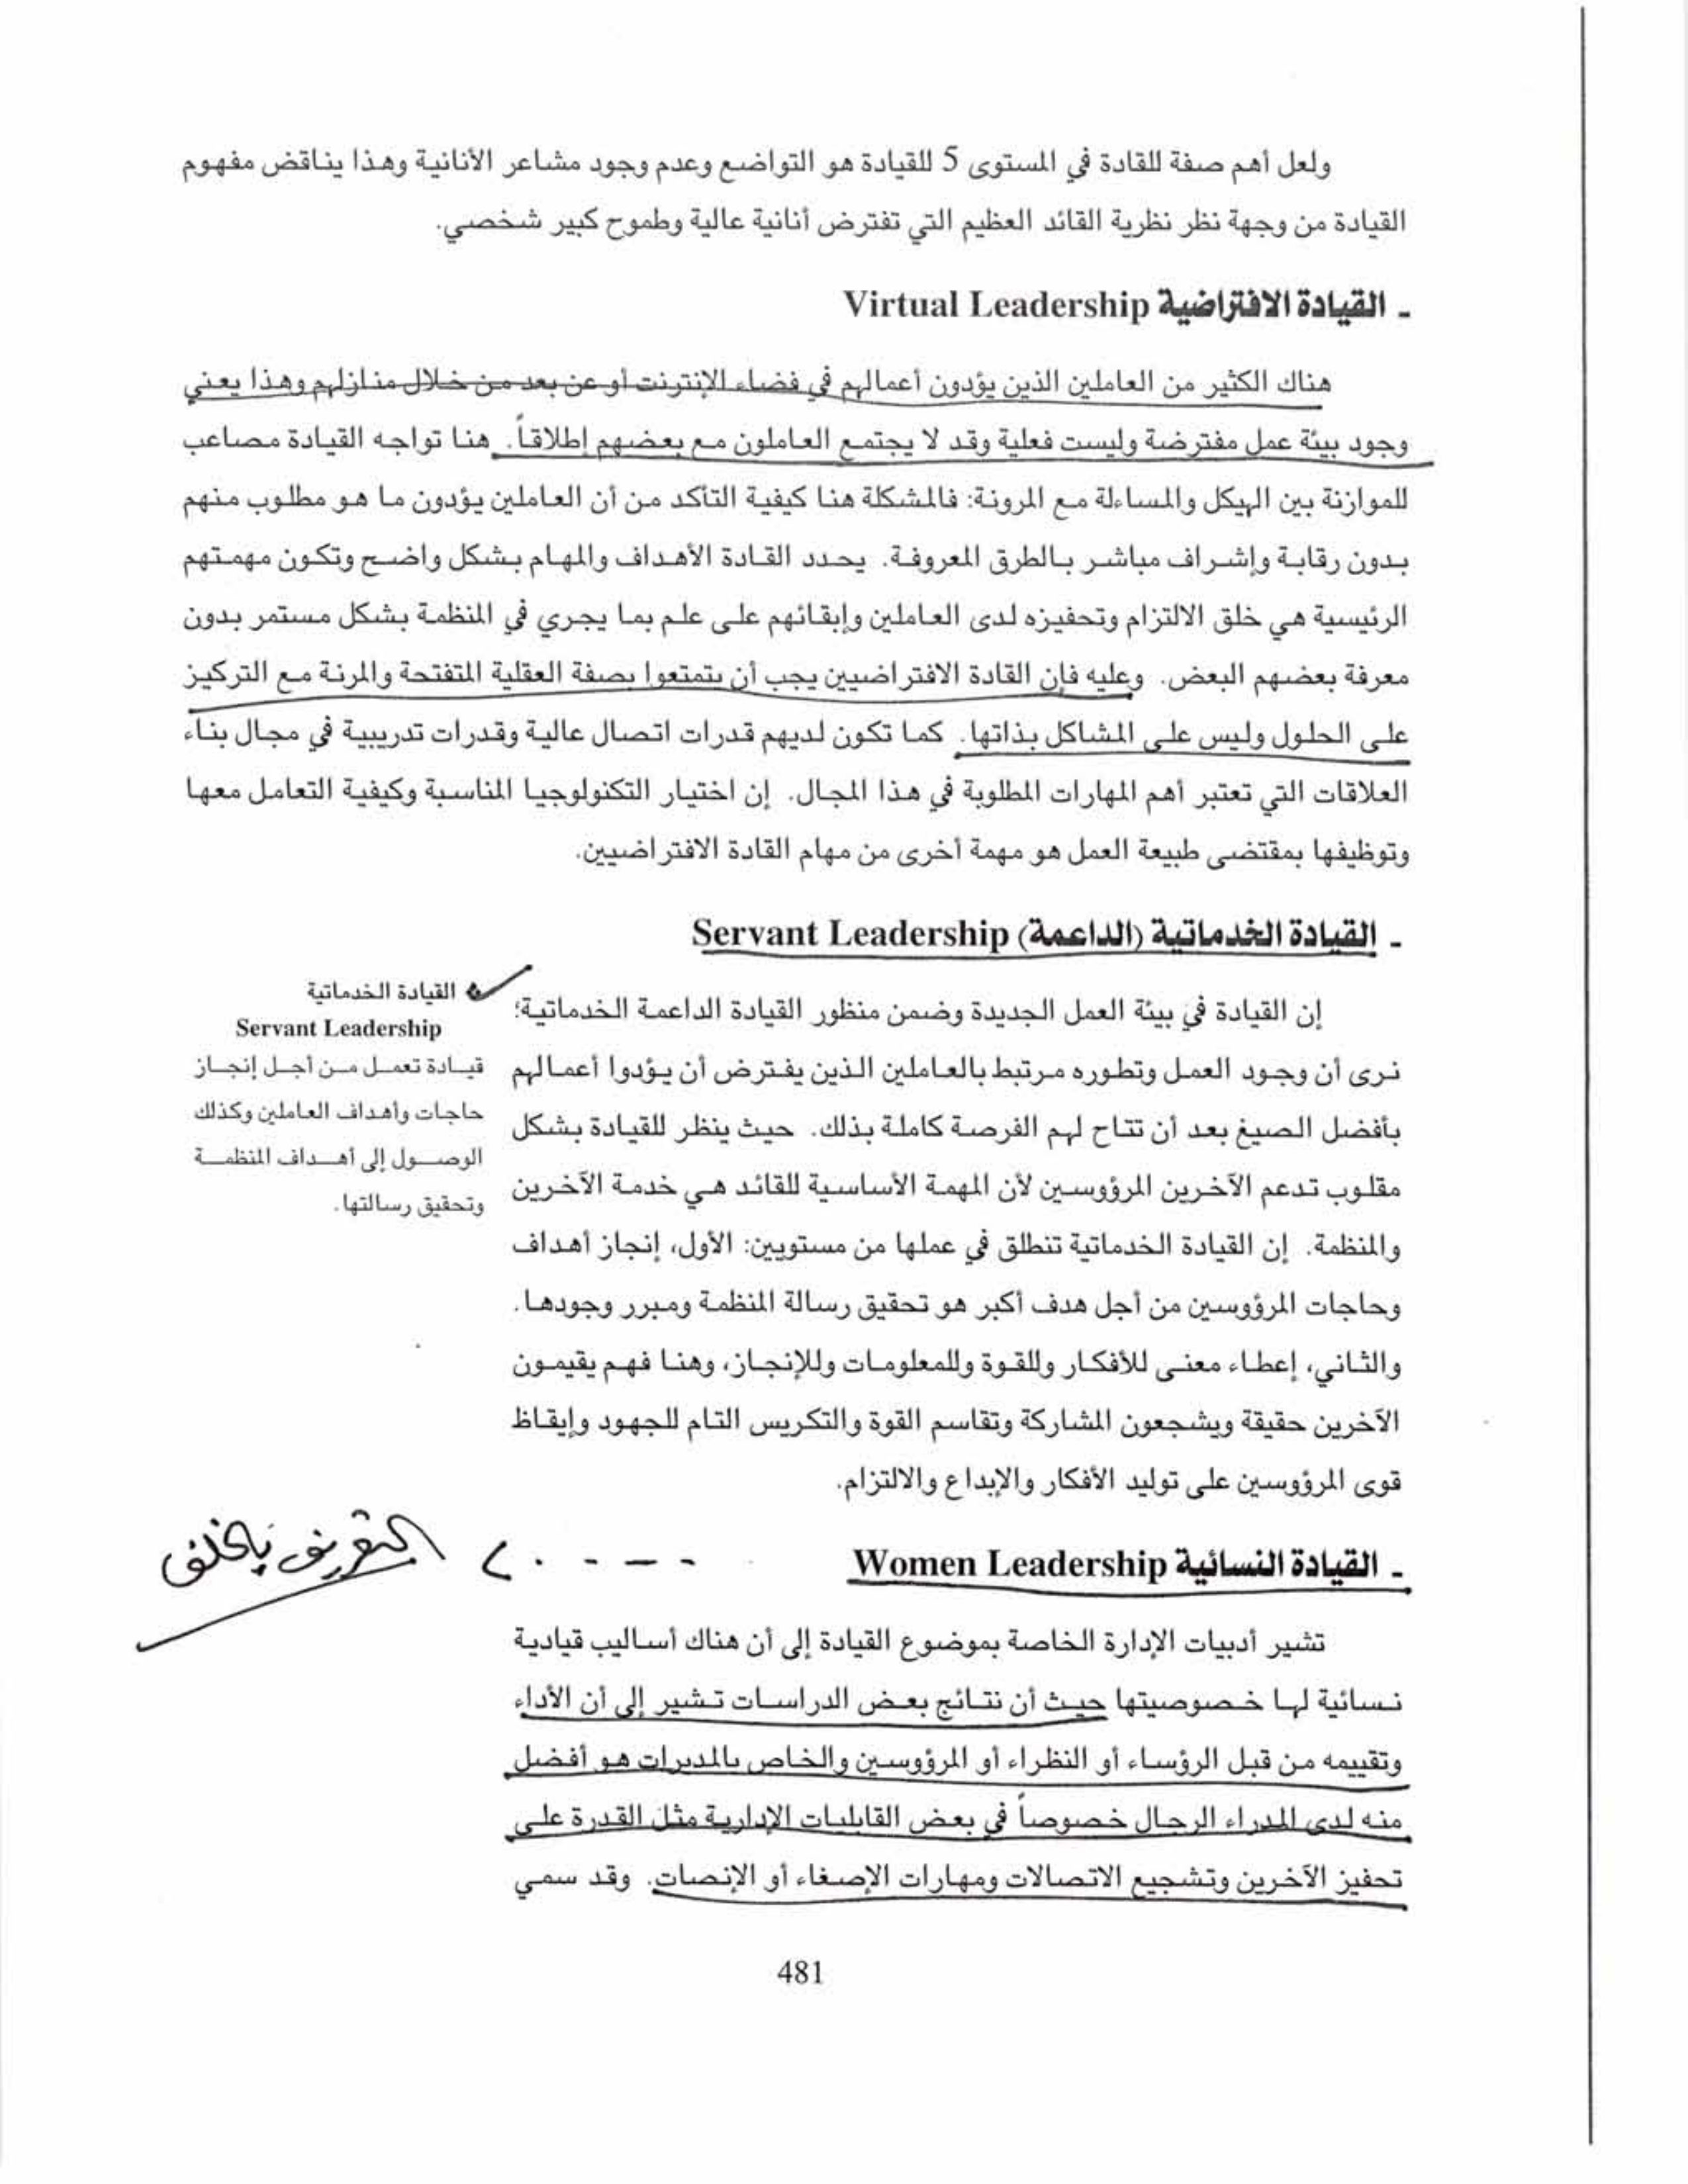 ولعل أهم صفة للقادة في المستوى 5 للقيادة هو التواضع وعدم وجود مشاعر الأنانية وهذا يناقض مفهوم
القيادة من وجهة نظر نظرية القائد العظيم التي تفترض أنانية عالية وطموح كبير شخصي.
- القيادة الافتراضية Virtual Leadership
هناك الكثير من العاملين الذين يؤدون أعمالهم في فضاء الإنترنت أو عن بعد من خلال منازلهم وهذا يعني
وجود بيئة عمل مفترضة وليست فعلية وقد لا يجتمع العاملون مع بعضهم إطلاقاً. هنا تواجه القيادة مصاعب
للموازنة بين الهيكل والمساءلة مع المرونة: فالمشكلة هنا كيفية التأكد من أن العاملين يؤدون ما هو مطلوب منهم
بدون رقابة وإشراف مباشر بالطرق المعروفة. يحدد القادة الأهداف والمهام بشكل واضح وتكون مهمتهم
الرئيسية هي خلق الالتزام وتحفيزه لدى العاملين وإبقائهم على علم بما يجري في المنظمة بشكل مستمر بدون
معرفة بعضهم البعض. وعليه فإن القادة الافتراضيين يجب أن يتمتعوا بصفة العقلية المتفتحة والمرنة مع التركيز
على الحلول وليس على المشاكل بذاتها. كما تكون لديهم قدرات اتصال عالية وقدرات تدريبية في مجال بناء
العلاقات التي تعتبر أهم المهارات المطلوبة في هذا المجال. إن اختيار التكنولوجيا المناسبة وكيفية التعامل معها
وتوظيفها بمقتضى طبيعة العمل هو مهمة أخرى من مهام القادة الافتراضيين.
- القيادة الخدماتية (الداعمة) Servant Leadership
إن القيادة في بيئة العمل الجديدة وضمن منظور القيادة الداعمة الخدماتية؛
نرى أن وجود العمل وتطوره مرتبط بالعاملين الذين يفترض أن يؤدوا أعمالهم
بأفضل الصيغ بعد أن تتاح لهم الفرصة كاملة بذلك. حيث ينظر للقيادة بشكل
مقلوب تدعم الآخرين المرؤوسين لأن المهمة الأساسية للقائد هي خدمة الآخرين
والمنظمة. إن القيادة الخدماتية تنطلق في عملها من مستويين: الأول، إنجاز أهداف
وحاجات المرؤوسين من أجل هدف أكبر هو تحقيق رسالة المنظمة ومبرر وجودها.
والثاني، إعطاء معنى للأفكار وللقوة وللمعلومات وللإنجاز، وهنا فهم يقيمون
الآخرين حقيقة ويشجعون المشاركة وتقاسم القوة والتكريس التام للجهود وإيقاظ
قوى المرؤوسين على توليد الأفكار والإبداع والالتزام.
❖ القيادة الخدماتية
Servant Leadership
قيادة تعمل من أجل إنجاز
حاجات وأهداف العاملين وكذلك
الوصول إلى أهداف المنظمة
وتحقيق رسالتها.
- القيادة النسائية Women Leadership
التعريف بالخلف
تشير أدبيات الإدارة الخاصة بموضوع القيادة إلى أن هناك أساليب قيادية
نسائية لها خصوصيتها حيث أن نتائج بعض الدراسات تشير إلى أن الأداء
وتقييمه من قبل الرؤساء أو النظراء أو المرؤوسين والخاص بالمديرات هو أفضل
منه لدى المدراء الرجال خصوصاً في بعض القابليات الإدارية مثل القدرة على
تحفيز الآخرين وتشجيع الاتصالات ومهارات الإصغاء أو الإنصات. وقد سمي
481